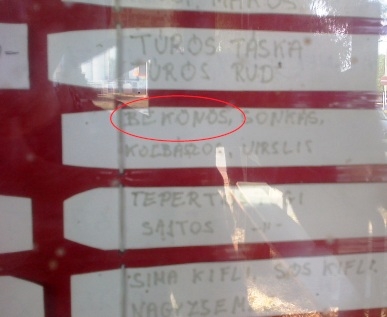 MÁKOS
TÚRÓS TÁSKA
TÚRÓS RÚD
BEKONOS, SONKÁS,
KOLBÁSZOS, VIRSLIS
TEPERT
SAJTOS -"-
SIMA KIFLI, SÓS KIFLI,
NAGYZSEM